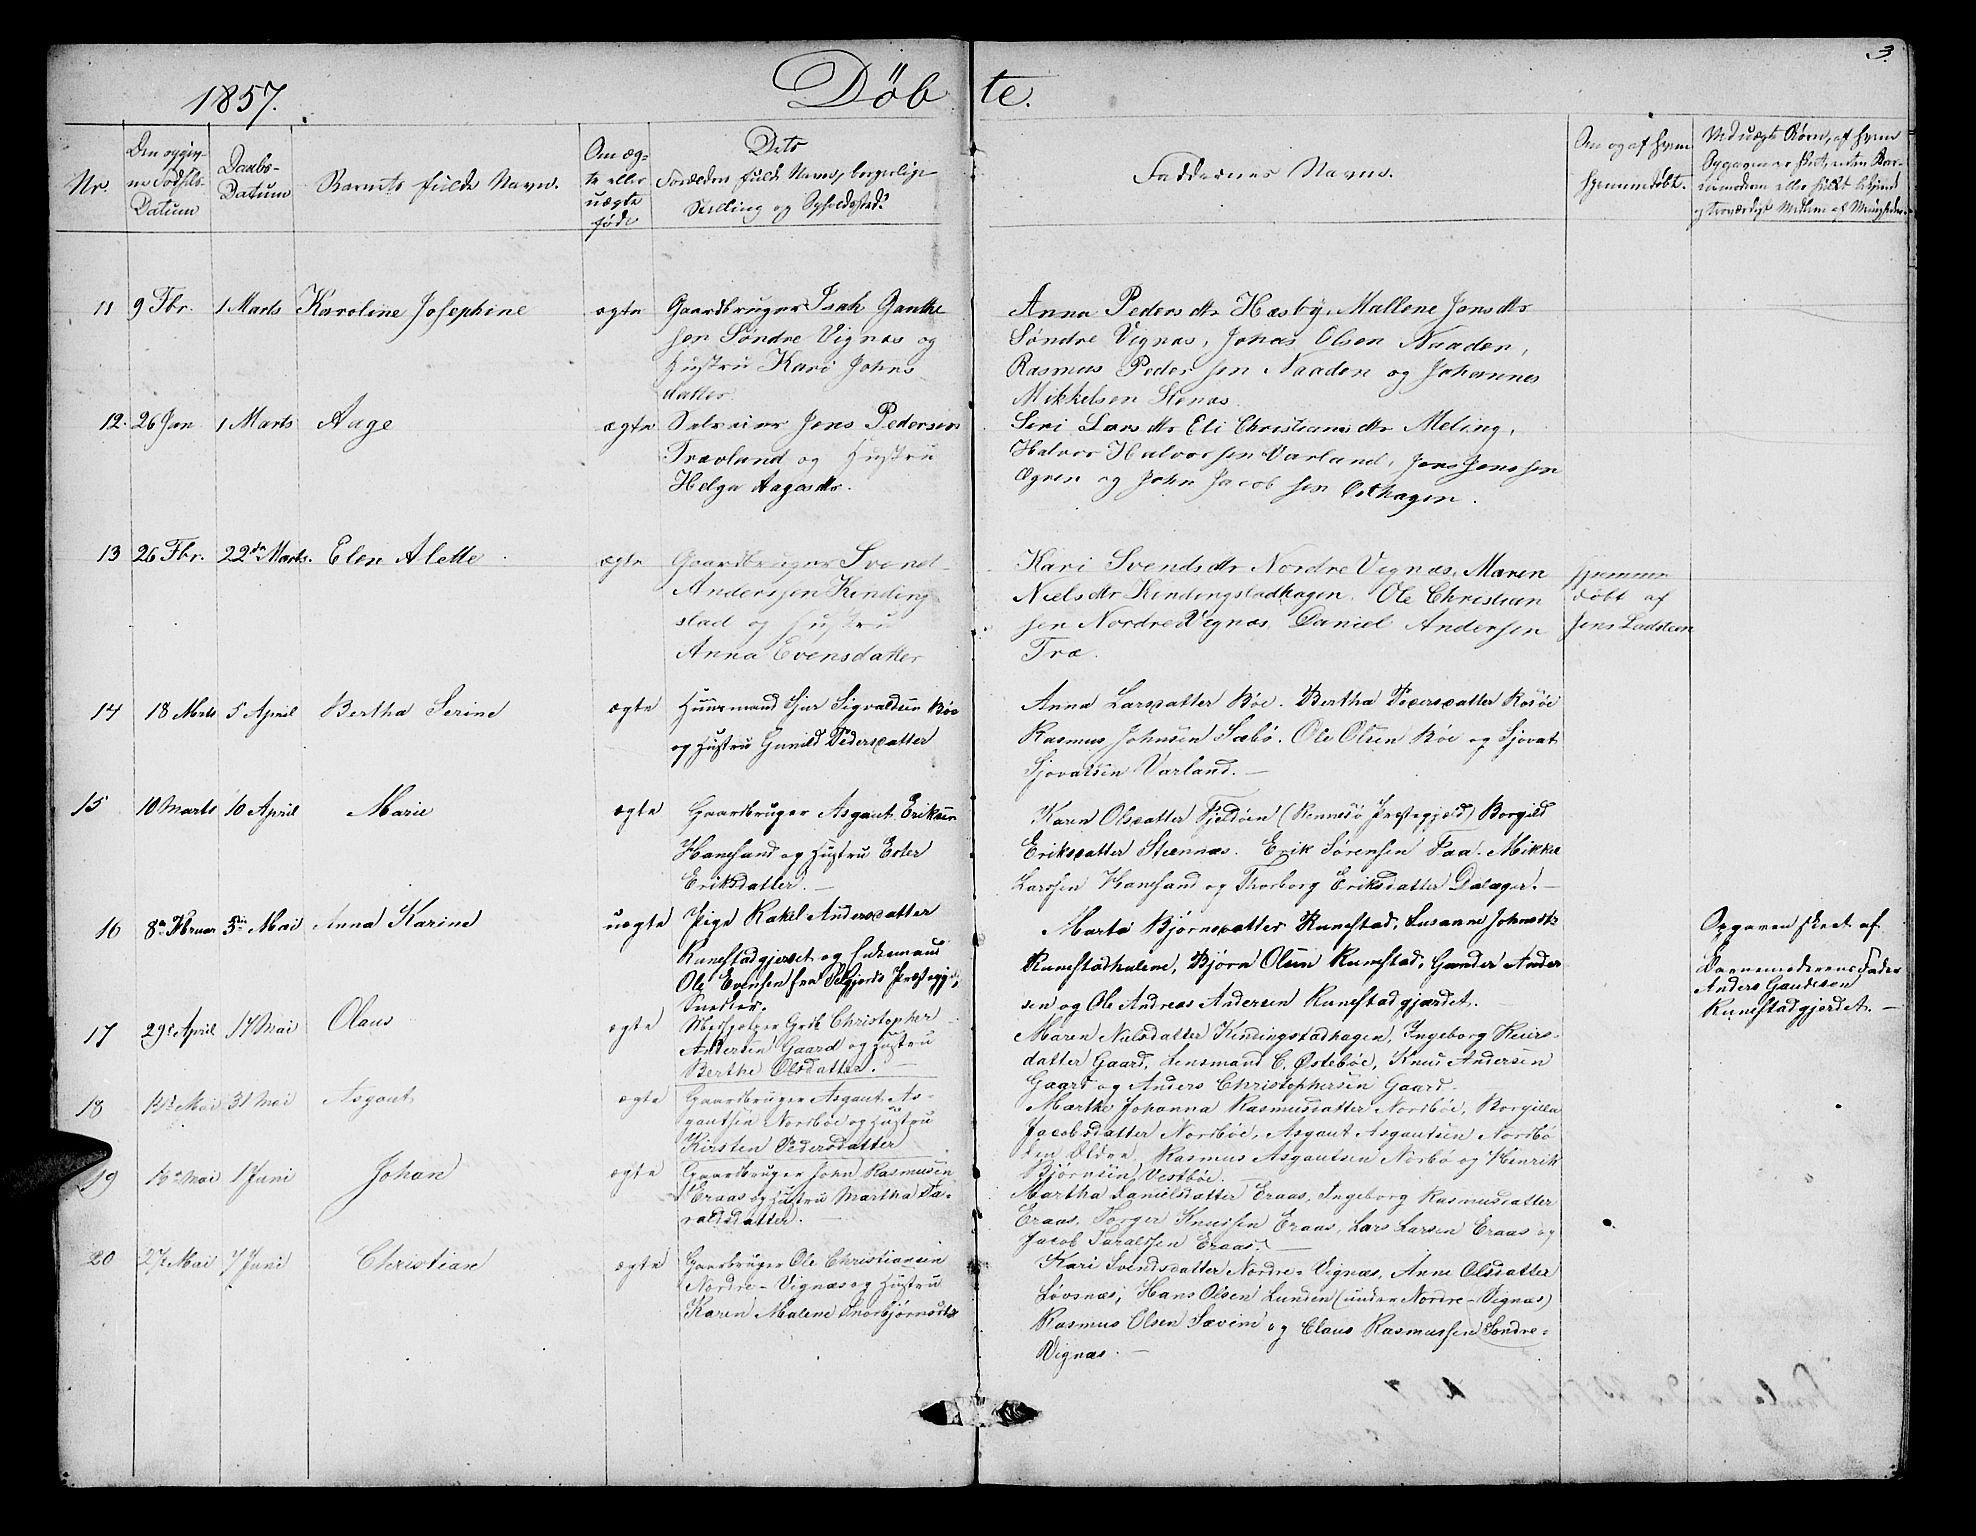 3
1857.
Döbte.
Nr.
Den opgivne Födsels Datum
Daabs-Datum
Barnets fulde Navn.
Om ægte eller uægte föde
Dets Forældres fulde Navne, borgerlige Stilling og Opholdssted.
Faddernes Navne.
Om og af hvem hjemmedöbt.
Ved uægte Børn, af hvem Opgaven er skeet, enten Barnemoderen eller
11 9 Fbr. 1 Marts Karoline Josephine ægte Gaardbruger Isak Gauthe
sen Søndre Vignæs og
Hustru Kari Johns
datter.
Anna Pedersdtr Hæsby, Mallene Jonsdtr
Søndre Vignæs, Jonas Olsen Naaden,
Rasmus Pedersen Naaden og Johannes
Mikkelsen Stenæs.
12. 26 Jan 1 Marts Aage ægte Selveier Jens Pedersen
Trævland og Hustru
Helga Aagesdtr.
Siri Larsdtr Eli Christiansdtr Meling,
Halvor Halvorsen Varland, Jens Jenssen
Øgren og John Jacobsen Østhagen.
13 26 Fbr. 22de Marts. Elen Alette ægte Gaardbruger Svend
Anderssen Kinding
stad og Hustru
Anna Evensdatter
Kari Svendsdtr Nordre Vignæs, Maren
Nielsdtr Kindingstadhagen. Ole Christian
sen Nordre Vignæs, Daniel Andersen
Træ.
hjemme
döbt af
Jens Ladsteen
14 18 Mrts 5 April Bertha Serine ægte Huusmand Sjur Sigvaldsen Bøe
og Hustru Gunild Pedersdatter
Anna Larsdatter Bøe. Bertha Pedersdatter Rosöe
Rasmus Johnsen Sæbö. Ole Olsen Bøe og Sjovat
Sjovatsen Varland. —
15 10 Marts 10 April Marie ægte Gaardbruger Asgaut Eriksen
Hanesand og Hustru Ester
Eriksdatter. —
Karen Olsdatter Fjeldöen (Rennesö Præstegjeld) Borgild
Eriksdatter Steennæs. Erik Sørensen Faa. Mikkel
Larssen Hanesand og Thorborg Eriksdatter Dalager. —
16 8de Februar 5te Mai Anna Karine uægte Pige Rakel Andersdatter
Runestadgjerdet og Enkemand
Ole Evensen fra Præstegjeld,
Marta Bjørnsdatter Runestad, Susanne Johnsdtr
Runestadhalene, Bjørn Olsen Runestad, Gunder Ander
sen og Ole Andreas Andersen Runestadgjærdet.
Opgaven skeet af
Barnemoderens Fader
Anders Gaudesen
Runestadgjerdet. —
17 29de April 17 Mai Olaus ægte Medhjelper Grdb. Christopher
Andersen Gaard og Hustru
Berthe Olsdatter. —
Maren Nielsdatter Kindingstadhagen, Ingeborg Reiers-
datter Gaard, Lensmand C. Østebøe, Knud Andersen
Gaard og Anders Christophersen Gaard.
18 14de Mai 31 Mai Asgaut ægte Gaardbruger Asgaut As-
gautsen Nordböe og Hustru
Kirsten Pedersdatter
Marthe Johanna Rasmusdatter Nordböe, Borgilla
Jacobsdatter Nordböe, Asgaut Asgautsen Nordbö
den Ældre, Rasmus Asgautsen Norbö og Henrik
Bjørnsen Vestbøe. —
19 15de Mai 1 Juni Johan ægte Gaardbruger John Rasmusen
Eraas og Hustru Martha Ta-
raldsdatter. —
Martha Danielsdatter Eraas, Ingeborg Rasmusdatter
Eraas, Torger Knudsen Eraas, Lars Larsen Eraas og
Jacob Taraldsen Eraas. —
20 27de Mai 7 Juni Christian ægte Gaardbruger Ole Christiansen
Nordre-Vignæs og Hustru
Karen Malene Snorbjørnsdtr
Kari Svendsdatter Nordre-Vignæs, Anne Olsdatter
Løvsnæs, Hans Olsen Lunden (under Nordre-Vignæs)
Rasmus Olsen Sævem og Claus Rasmussen Sondre-
Vignæs. —